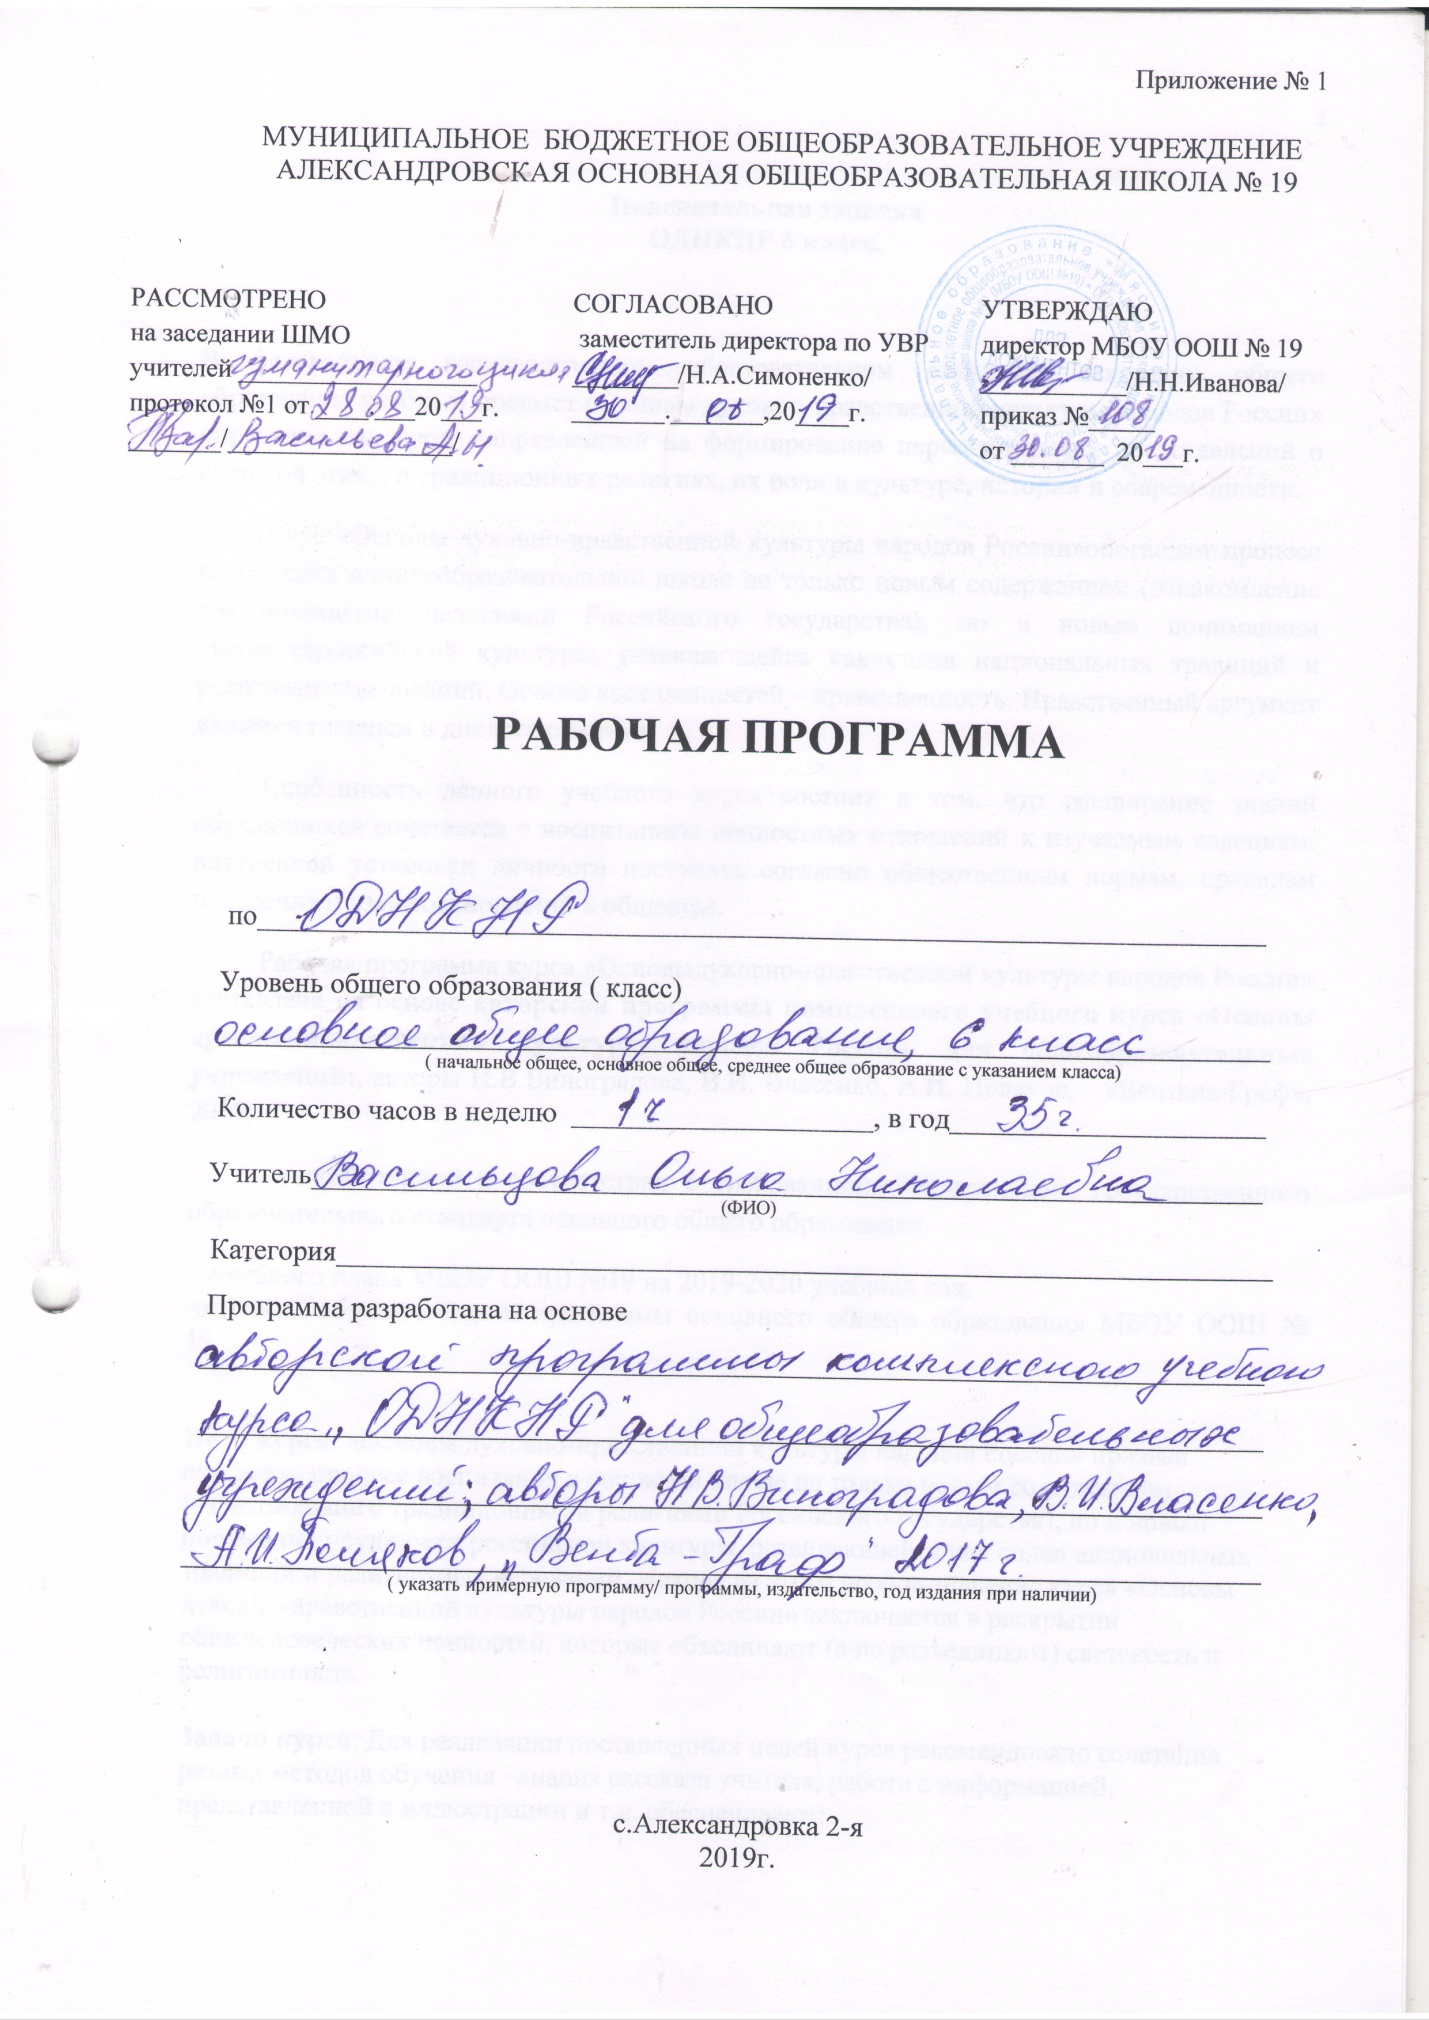 Приложение № 1
МУНИЦИПАЛЬНОЕ БЮДЖЕТНОЕ ОБЩЕОБРАЗОВАТЕЛЬНОЕ УЧРЕЖДЕНИЕ
АЛЕКСАНДРОВСКАЯ ОСНОВНАЯ ОБЩЕОБРАЗОВАТЕЛЬНАЯ ШКОЛА № 19
РАССМОТРЕНО
на заседании ШМО
учителей гуманитарного цикла
протокол №1 от 28.08 2019г.
/ Васильева А.Н. /
СОГЛАСОВАНО
заместитель директора по УВР
/Н.А.Симоненко/
30 . 08 .2019 г.
УТВЕРЖДАЮ
директор МБОУ ООШ № 19
/Н.Н.Иванова/
приказ № 108
от 30.08 2019 г.
РАБОЧАЯ ПРОГРАММА
по ОДНКНР
Уровень общего образования ( класс)
основное общее образование, 6 класс
( начальное общее, основное общее, среднее общее образование с указанием класса)
Количество часов в неделю 1ч , в год 35ч.
Учитель Васильцова Ольга Николаевна
(ФИО)
Категория
Программа разработана на основе
авторской программы комплексного учебного
курса „ОДНКНР" для общеобразовательных
учреждений; авторы Н.В.Виноградова, В.И.Власенко,
А.И.Поляков, „Вента-Граф" 2017г.
( указать примерную программу/ программы, издательство, год издания при наличии)
с.Александровка 2-я
2019г.